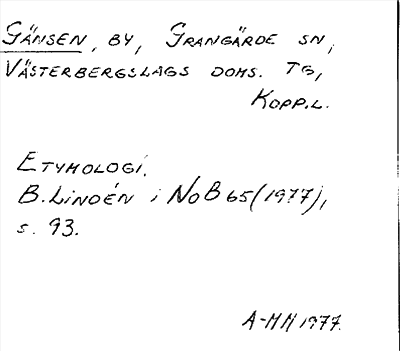 Gänsen, by, Grangärde sn,
Västerbergslags doms. tg,
Kopp.l.
Etymologi.
B. Lindén i NoB 65 (1977),
s. 93.
A-MH 1977.